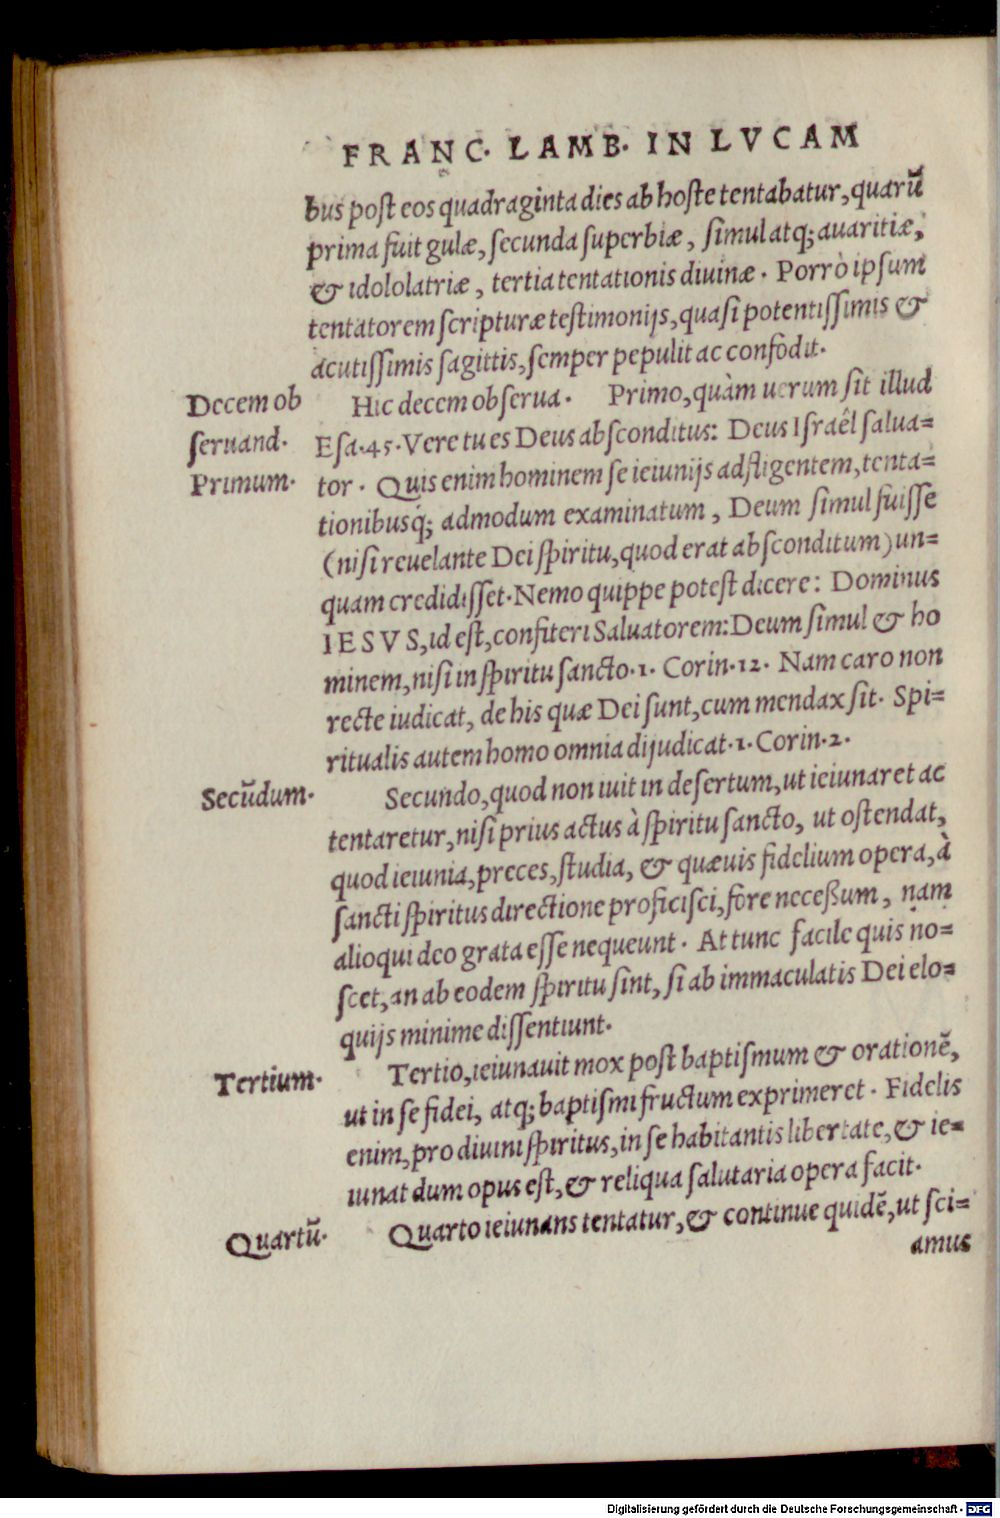 FRANC. LAMB. IN LVCAM
bus post eos quadraginta dies ab hoste tentabatur, quarũ
prima fuit gulæ, secunda superbiæ, simul atq; auaritiæ,
& idololatriæ, tertia tentationis diuinæ. Porrò ipsum
tentatorem scripturæ testimonijs, quasi potentissimis &
acutissimis sagittis, semper pepulit ac confodit.
Decem ob
Hic decem obserua. Primo, quàm uerum sit illud
seruand.
Esa. 45. Vere tu es Deus absconditus: Deus Israêl salua=
Primum.
tor. Quis enim hominem se ieiunijs adfligentem, tenta=
tionibusq́; admodum examinatum, Deum simul fuisse
(nisi reuelante Dei spiritu, quod erat absconditum) un=
quam credidisset. Nemo quippe potest dicere: Dominus
IESVS, id est, confiteri Saluatorem: Deum simul & ho
minem, nisi in spiritu sancto. 1. Corin. 12. Nam caro non
recte iudicat, de his quæ Dei sunt, cum mendax sit. Spi=
ritualis autem homo omnia dijudicat. 1. Corin. 2.
Secũdum.
Secundo, quod non iuit in desertum, ut ieiunaret ac
tentaretur, nisi prius actus à spiritu sancto, ut ostendat,
quod ieiunia, preces, studia, & quæuis fidelium opera, à
sancti spiritus directione proficisci, fore neceßum, nam
alioqui deo grata esse nequeunt. At tunc facile quis no=
scet, an ab eodem spiritu sint, si ab immaculatis Dei elo=
quijs minime dissentiunt.
Tertium.
Tertio, ieiunauit mox post baptismum & orationẽ,
ut in se fidei, atq; baptismi fructum exprimeret. Fidelis
enim, pro diuini spiritus, in se habitantis libertate, & ie=
iunat dum opus est, & reliqua salutaria opera facit.
Quartũ.
Quarto ieiunans tentatur, & continue quidẽ, ut sci=
amus
Digitalisierung gefördert durch die Deutsche Forschungsgemeinschaft - DFG